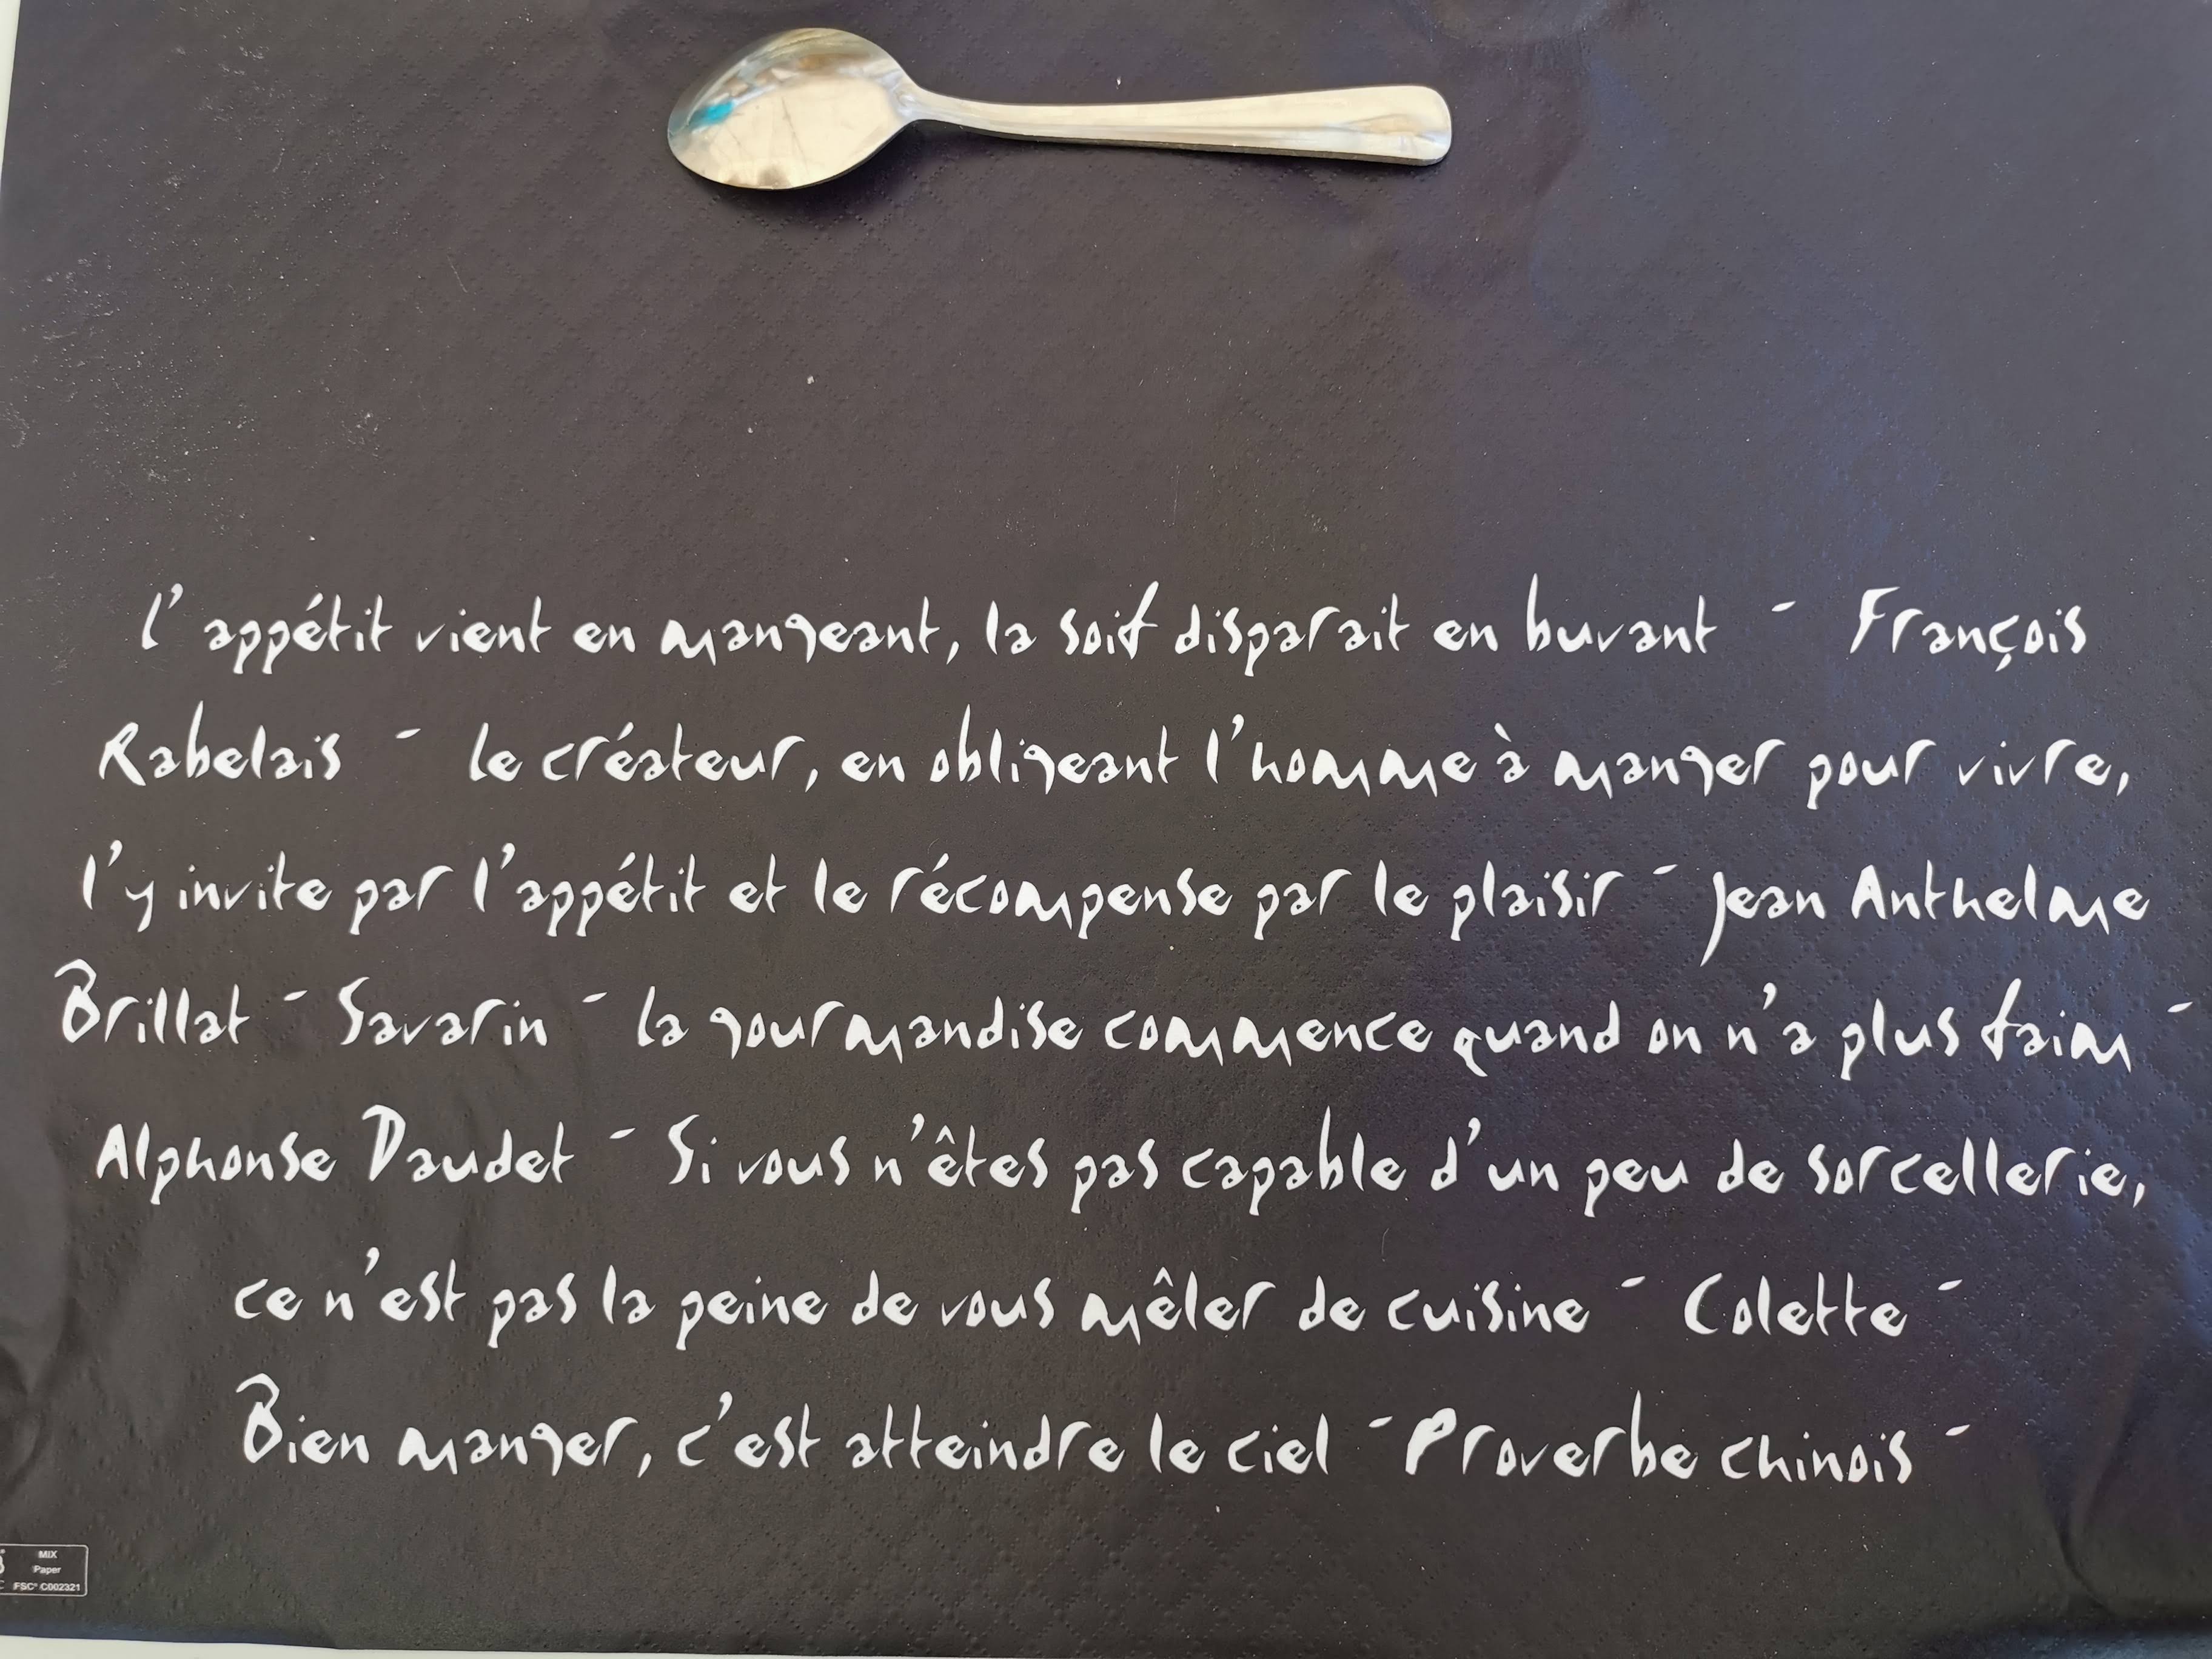 l'appétit vient en mangeant, la soif disparait en buvant - François
Rabelais - le créateur, en obligeant l'homme à manger pour vivre,
l'y invite par l'appétit et le récompense par le plaisir - Jean Anthelme
Brillat - Savarin - la gourmandise commence quand on n'a plus faim -
Alphonse Daudet - Si vous n'êtes pas capable d'un peu de sorcellerie,
ce n'est pas la peine de vous mêler de cuisine - Colette -
Bien manger, c'est atteindre le ciel - Proverbe chinois -
MIX
Paper
FSC® C002321